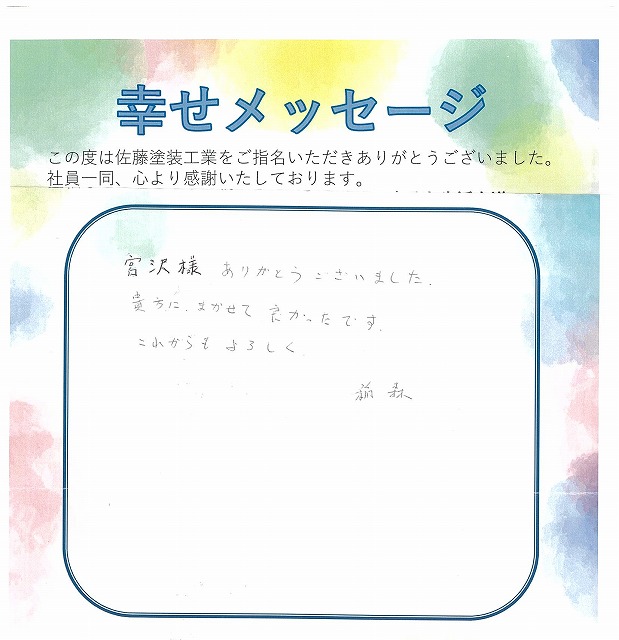 幸せメッセージ
この度は佐藤塗装工業をご指名いただきありがとうございました。
社員一同、心より感謝いたしております。
宮沢様 ありがとうございました.
貴方に、まかせて 良かったです.
これからも よろしく